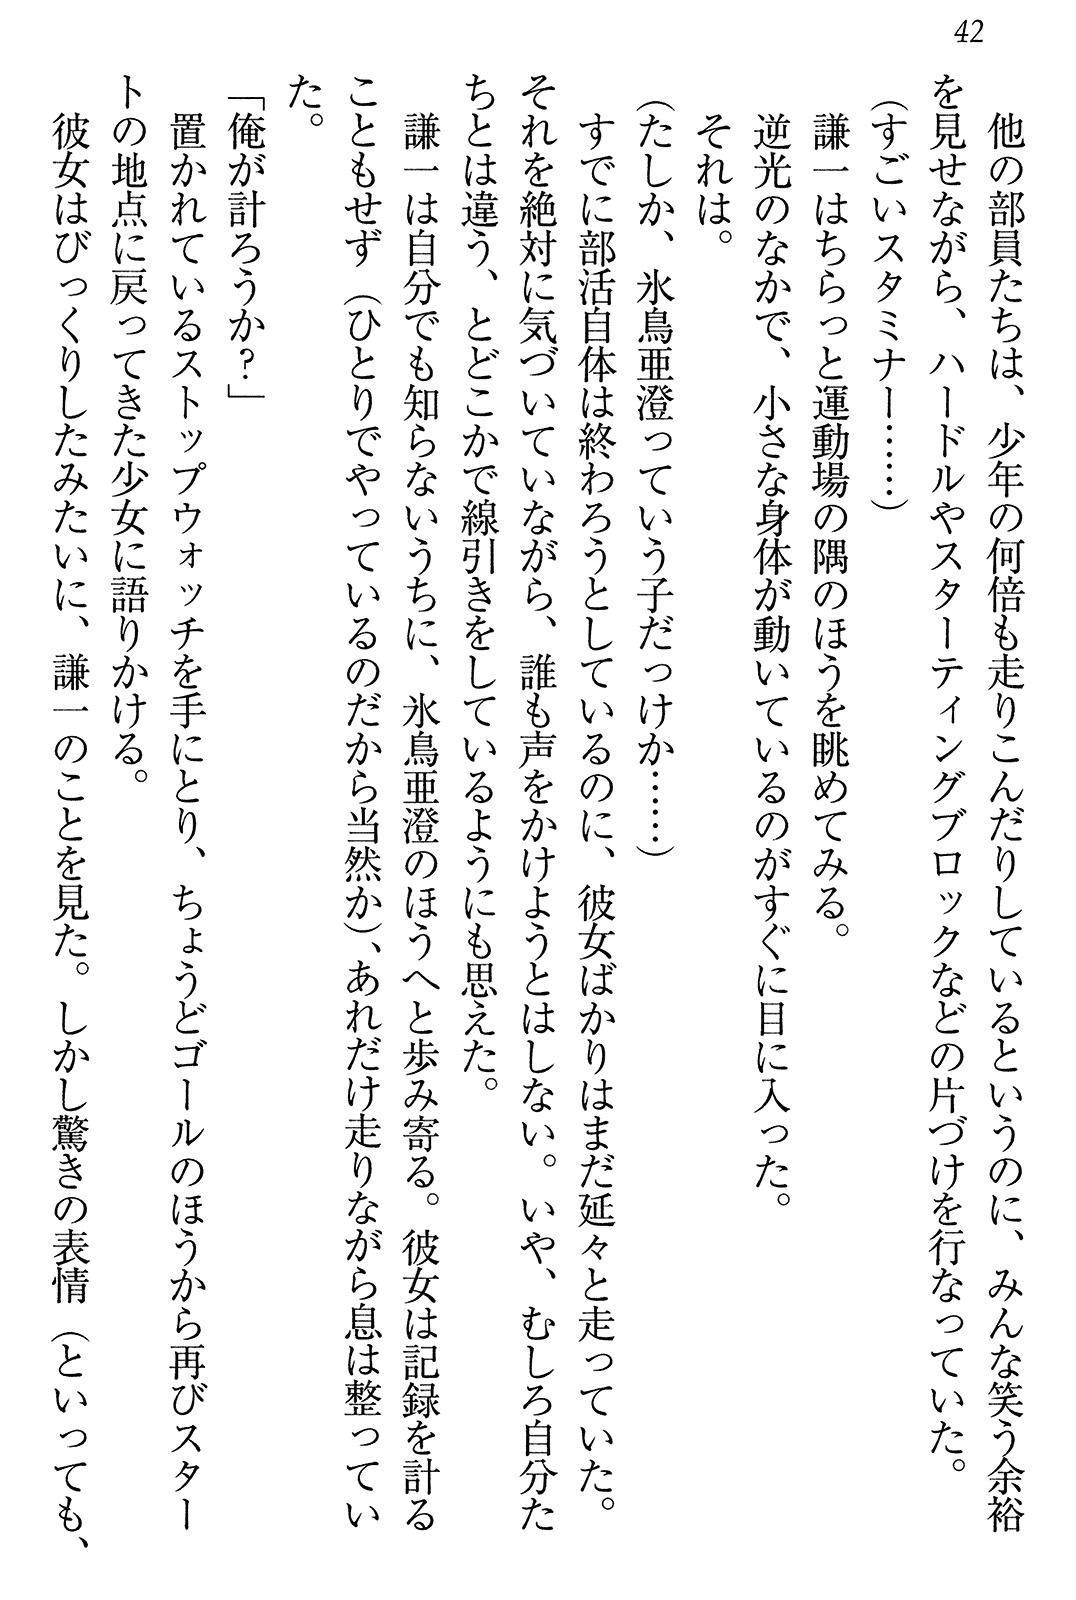 42
　他の部員たちは、少年の何倍も走りこんだりしているというのに、みんな笑う余裕
を見せながら、ハードルやスターティングブロックなどの片づけを行なっていた。
（すごいスタミナー……）
　謙一はちらっと運動場の隅のほうを眺めてみる。
　逆光のなかで、小さな身体が動いているのがすぐに目に入った。
　それは。
（たしか、氷鳥亜澄っていう子だっけか……）
　すでに部活自体は終わろうとしているのに、彼女ばかりはまだ延々と走っていた。
それを絶対に気づいていながら、誰も声をかけようとはしない。いや、むしろ自分た
ちとは違う、とどこかで線引きをしているようにも思えた。
　謙一は自分でも知らないうちに、氷鳥亜澄のほうへと歩み寄る。彼女は記録を計る
こともせず（ひとりでやっているのだから当然か）、あれだけ走りながら息は整ってい
た。
「俺が計ろうか？」
　置かれているストップウォッチを手にとり、ちょうどゴールのほうから再びスター
トの地点に戻ってきた少女に語りかける。
　彼女はびっくりしたみたいに、謙一のことを見た。しかし驚きの表情（といっても、